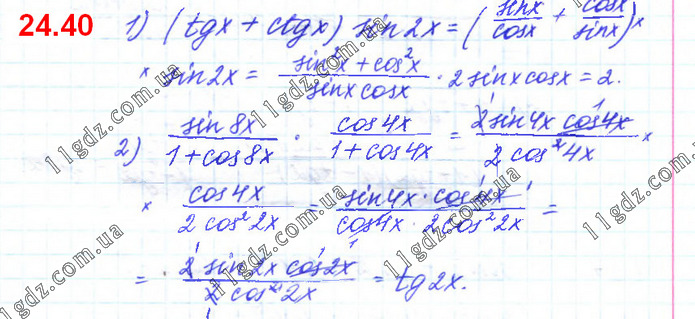 24.40
1) (tgx + ctgx) sin2x = (sinx/cosx + cosx/sinx) ×
× sin2x = (sin²x + cos²x)/(sinx cosx) · 2 sinx cosx = 2.
2) sin8x/(1+cos8x) · cos4x/(1+cos4x) = (2 sin4x cos4x)/(2 cos²4x) ×
× cos4x/(2 cos²2x) = (sin4x · cos4x)/(cos4x · 2cos²2x) =
= (2 sin2x cos2x)/(2 cos²2x) = tg2x.
11gdz.com.ua
11gdz.com.ua
11gdz.com.ua
11gdz.com.ua
11gdz.com.ua
11gdz.com.ua
11gdz.com.ua